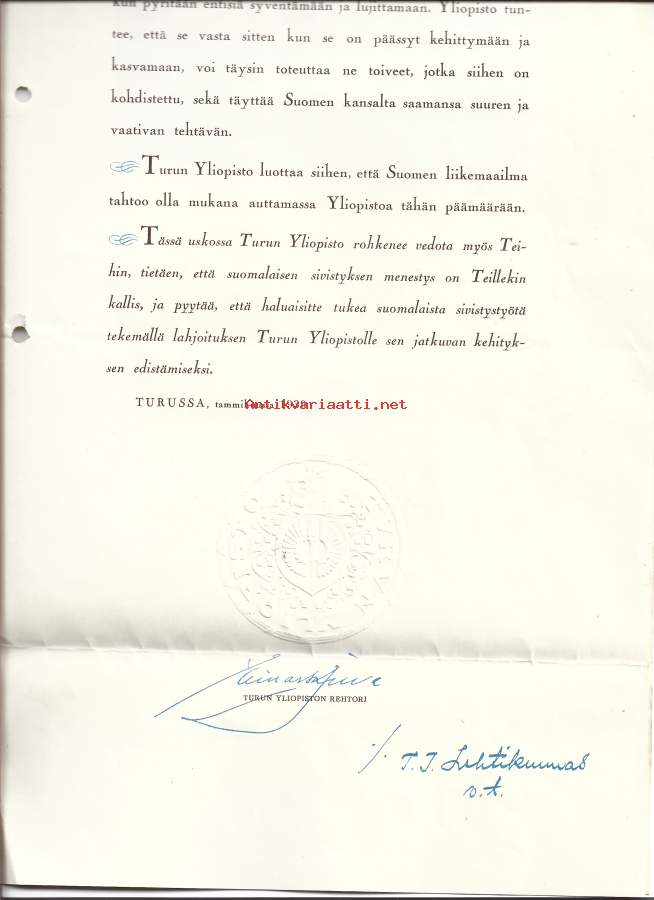 kun pyritään entisiä syventämään ja lujittamaan. Yliopisto tun-
tee, että se vasta sitten kun se on päässyt kehittymään ja
kasvamaan, voi täysin toteuttaa ne toiveet, jotka siihen on
kohdistettu, sekä täyttää Suomen kansalta saamansa suuren ja
vaativan tehtävän.
Turun Yliopisto luottaa siihen, että Suomen liikemaailma
tahtoo olla mukana auttamassa Yliopistoa tähän päämäärään.
Tässä uskossa Turun Yliopisto rohkenee vedota myös Tei-
hin, tietäen, että suomalaisen sivistyksen menestys on Teillekin
kallis, ja pyytää, että haluaisitte tukea suomalaista sivistystyötä
tekemällä lahjoituksen Turun Yliopistolle sen jatkuvan kehityk-
sen edistämiseksi.
TURUSSA, tammikuussa
Antikvariaatti.net
TURUN YLIOPISTO
TURUN YLIOPISTON REHTORI
T. J. Lehtikunnas
v. t.